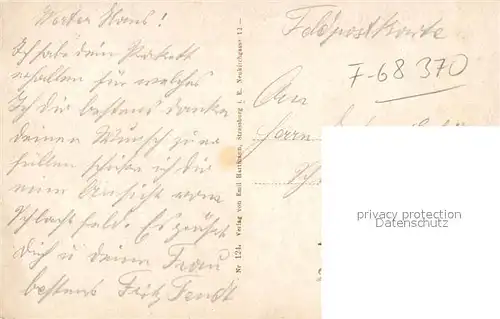 Werter Hans!
Ich habe dein Packett
erhalten für welches
Ich dir bestens danke
deinen Wunsch zu er
füllen schicke ich dir
eine Ansicht vom
Schlachtfeld. Es grüßt
dich u deine Frau
bestens Fritz Fendt
Nr 124. Verlag von Emil Hartmann, Strassburg i. E. Neukirchgasse 11
Feldpostkarte
F-68 370
An
Herrn
privacy protection
Datenschutz